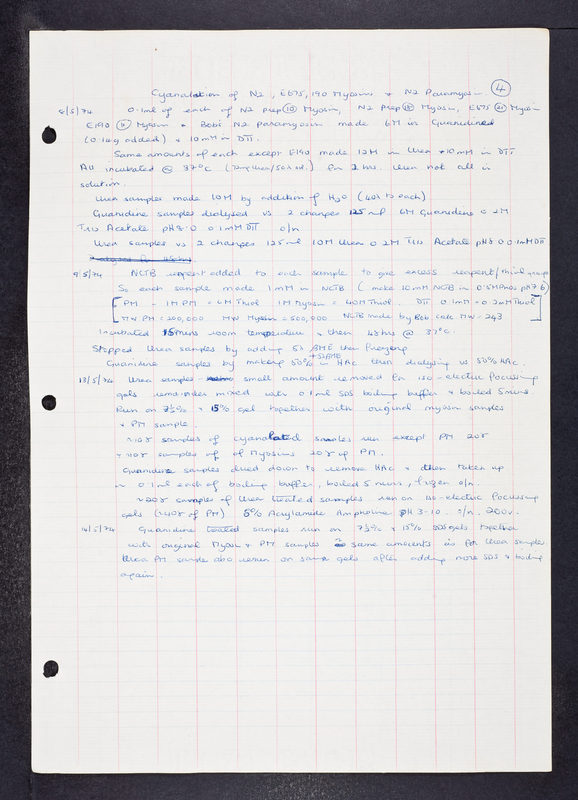 Cyanalation of N2, E675, 190 Myosins + N2 Paramyosin 4
8/5/74 0.1ml of each of N2 prep 10 Myosin, N2 prep Myosin, E675 Myosin
E190 Myosin + Bobs N2 Paramyosin made 6M in Guanidine
(0.1 g added) + 10mM in DTT.
Same amounts of each except E190 made 12M in Urea + 10mM in DTT
All incubated @ 37°C for 2 hrs. Urea not all in
solution.
Urea samples made 10M by addition of H2O (40λ to each)
Guanidine samples dialysed vs 2 changes 125ml 6M Guanidine 0.2M
Tris Acetate pH8.0 0.1mM DTT o/n
Urea samples vs 2 changes 125ml 10M Urea 0.2M Tris Acetate pH8.0 0.1mM DTT
9/5/74 NCTB reagent added to each sample to give excess reagent/thiol group
So each sample made 1mM in NCTB (make 10mM NCTB in 0.5M Phos pH7.6)
PM - 1M PM = 6M Thiol 1M Myosin = 40M Thiol DTT 0.1mM = 0.2mM Thiol
MW PM = 200,000 MW Myosin = 500,000 NCTB made by Bob calc MW. 243
Incubated 15mins room temperature + then 48hrs @ 37°C.
Stopped Urea samples by adding 5λ βME then freezing
Guanidine samples by making 50% in HAc + 5λ βME then dialysing vs 50% HAc
13/5/74 Urea samples small amount removed for iso-electric focussing
gels remainder mixed with 0.1ml SDS boiling buffer + boiled 5mins.
Run on 7½% + 15% gel together with original myosin samples
+ PM sample
~10γ samples of cyanalated samples run except PM 20γ
+ 10γ samples of Myosins 20γ of PM.
Guanidine samples dried down to remove HAc + then taken up
in 0.1ml each of boiling buffer, boiled 5 mins, frozen o/n.
~20γ samples of Urea treated samples run on iso-electric focussing
gels (~40γ of PM) 5% Acrylamide Ampholine pH 3-10. o/n. 200v.
14/5/74 Guanidine treated samples run on 7½% + 15% SDS gels together
with original Myosin + PM samples same amounts as for Urea samples
Urea PM sample also rerun on same gels after adding more SDS + boiling
again.